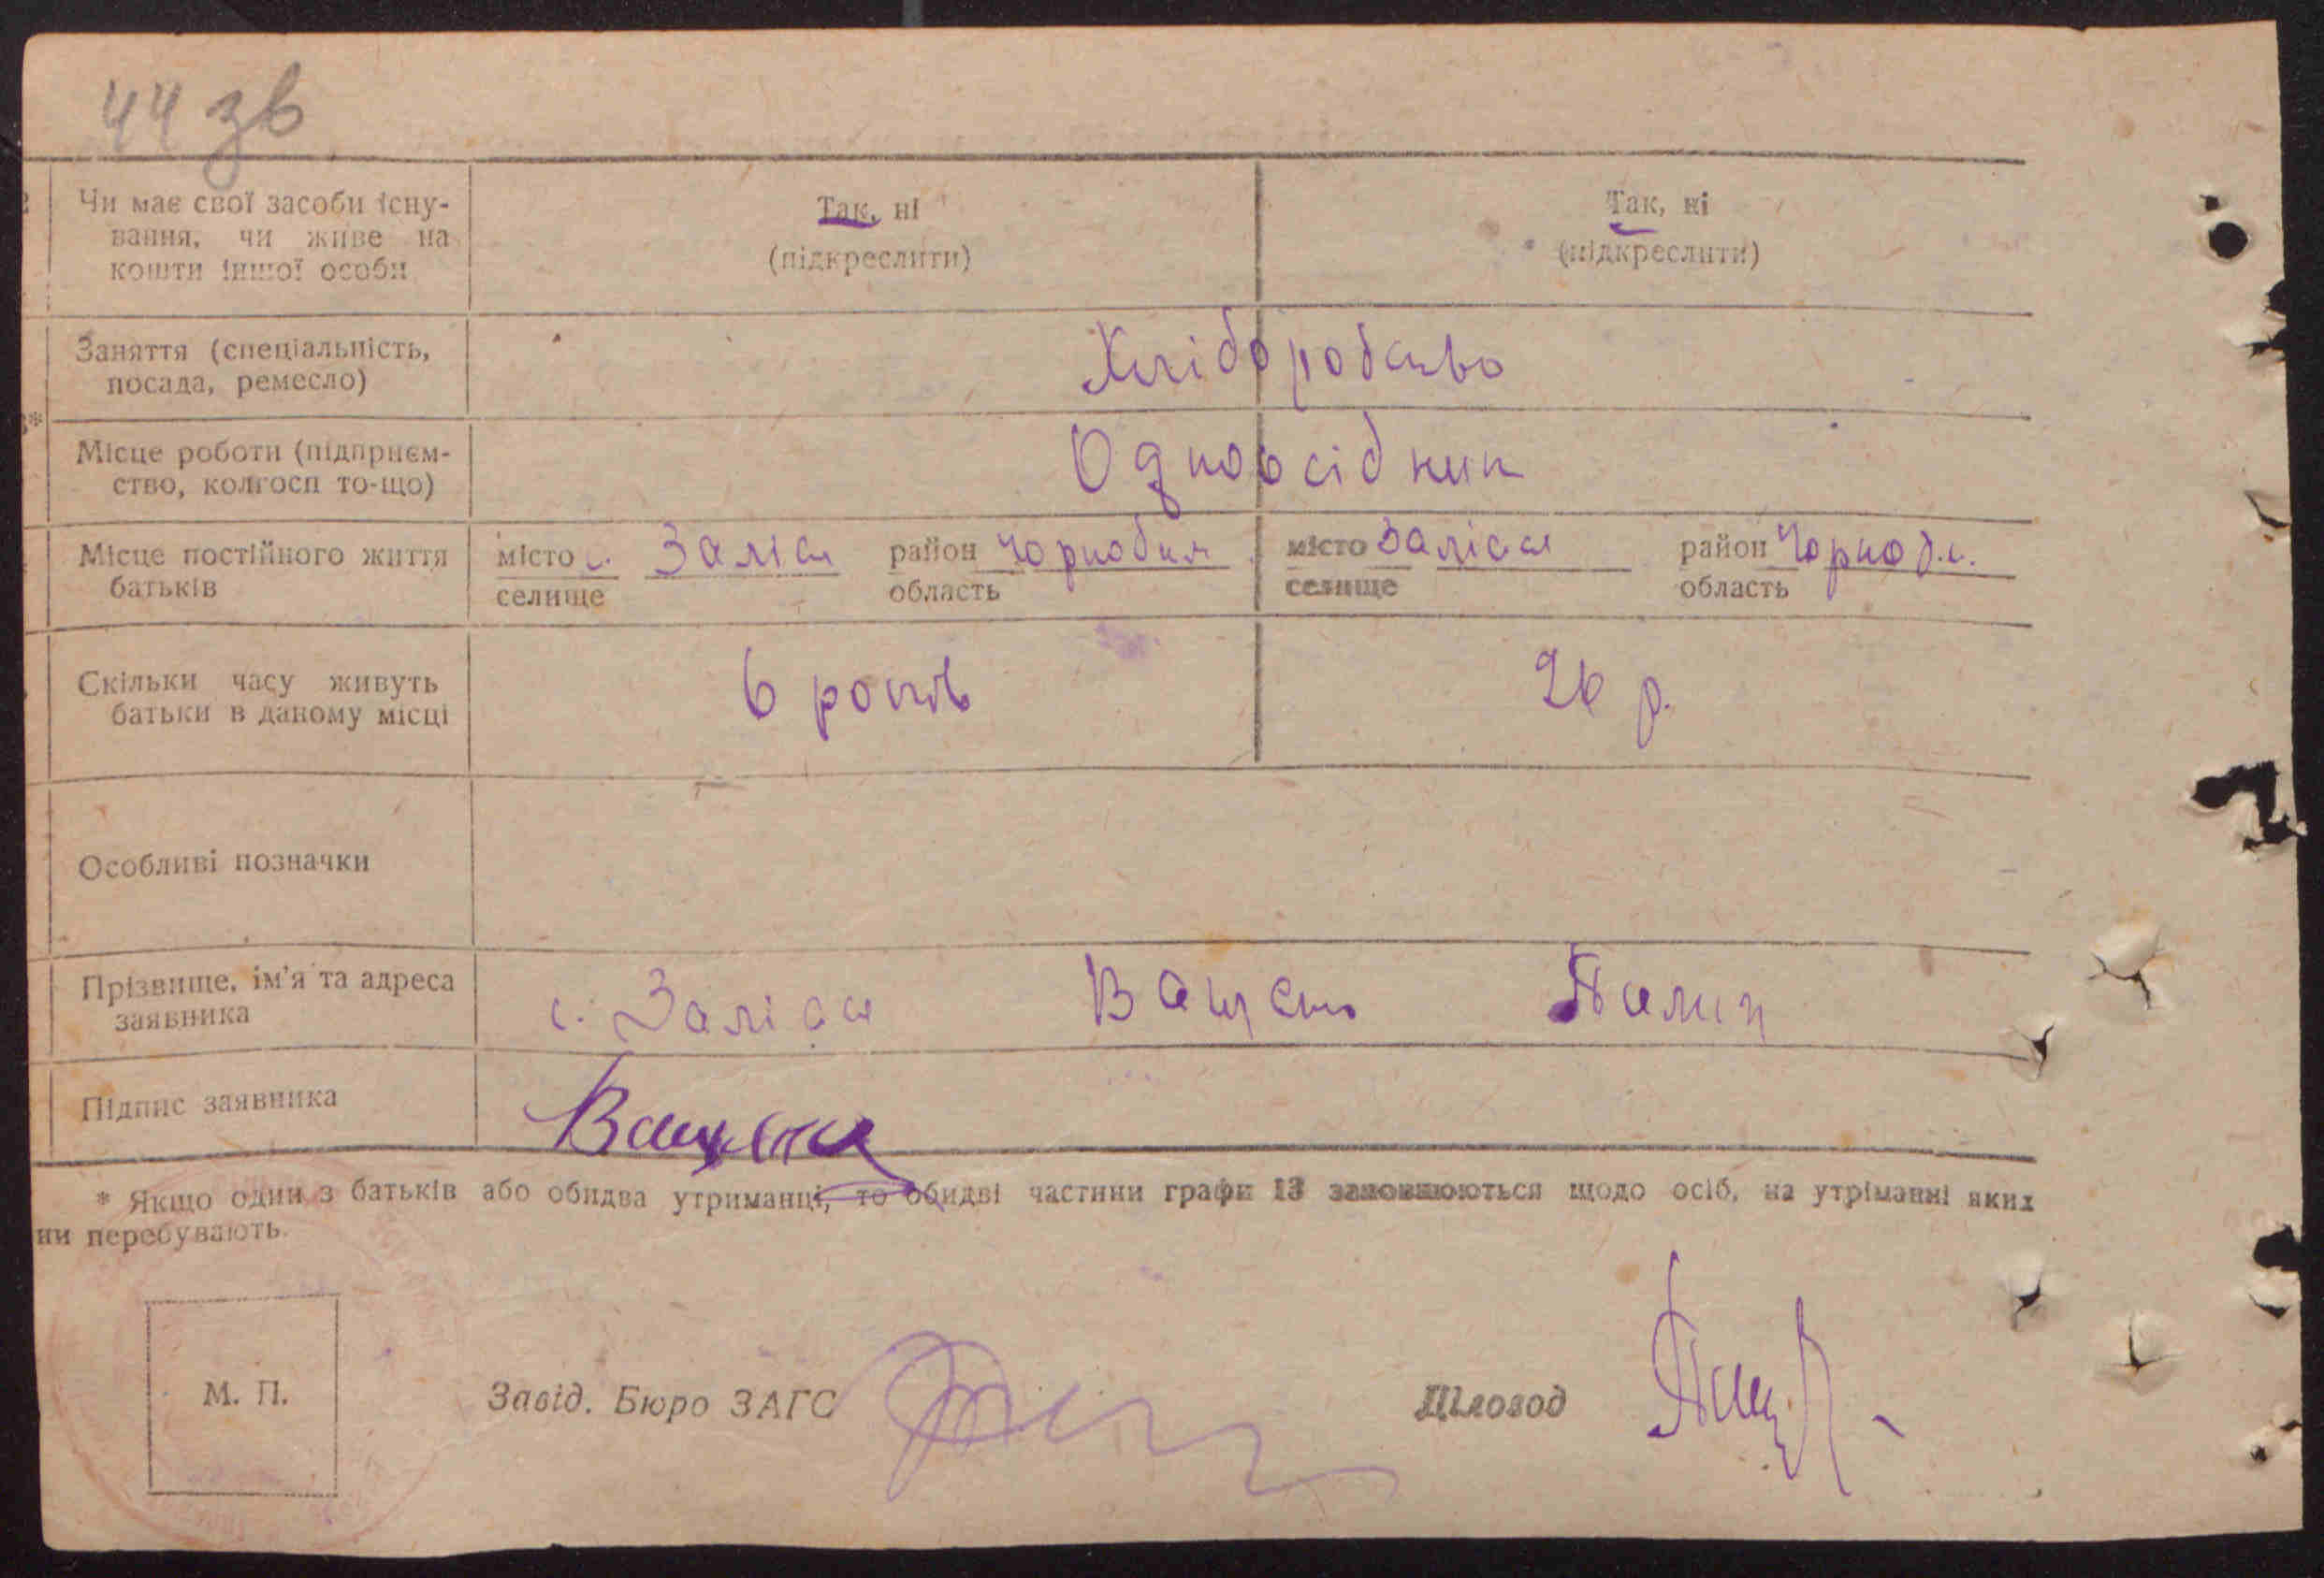 44 зв
Чи має свої засоби існу-
вання, чи живе на
кошти іншої особи
Так, ні
(підкреслити)
Так, ні
(підкреслити)
Заняття (спеціальність,
посада, ремесло)
Хліборобство
Місце роботи (підприєм-
ство, колгосп то-що)
Одноосібник
Місце постійного життя
батьків
місто с. Заліся район Чорнобил
селище область
місто Заліся район Чорноб.
селище область
Скільки часу живуть
батьки в даному місці
6 років
26 р.
Особливі позначки
Прізвище, ім'я та адреса
заявника
с. Заліся Ващенко
Підпис заявника
Ващенко
* Якщо один з батьків або обидва утриманці, то обидві частини графи 13 заповнюються щодо осіб, на утріманні яких
ни перебувають.
М. П.
Завід. Бюро ЗАГС
Діловод